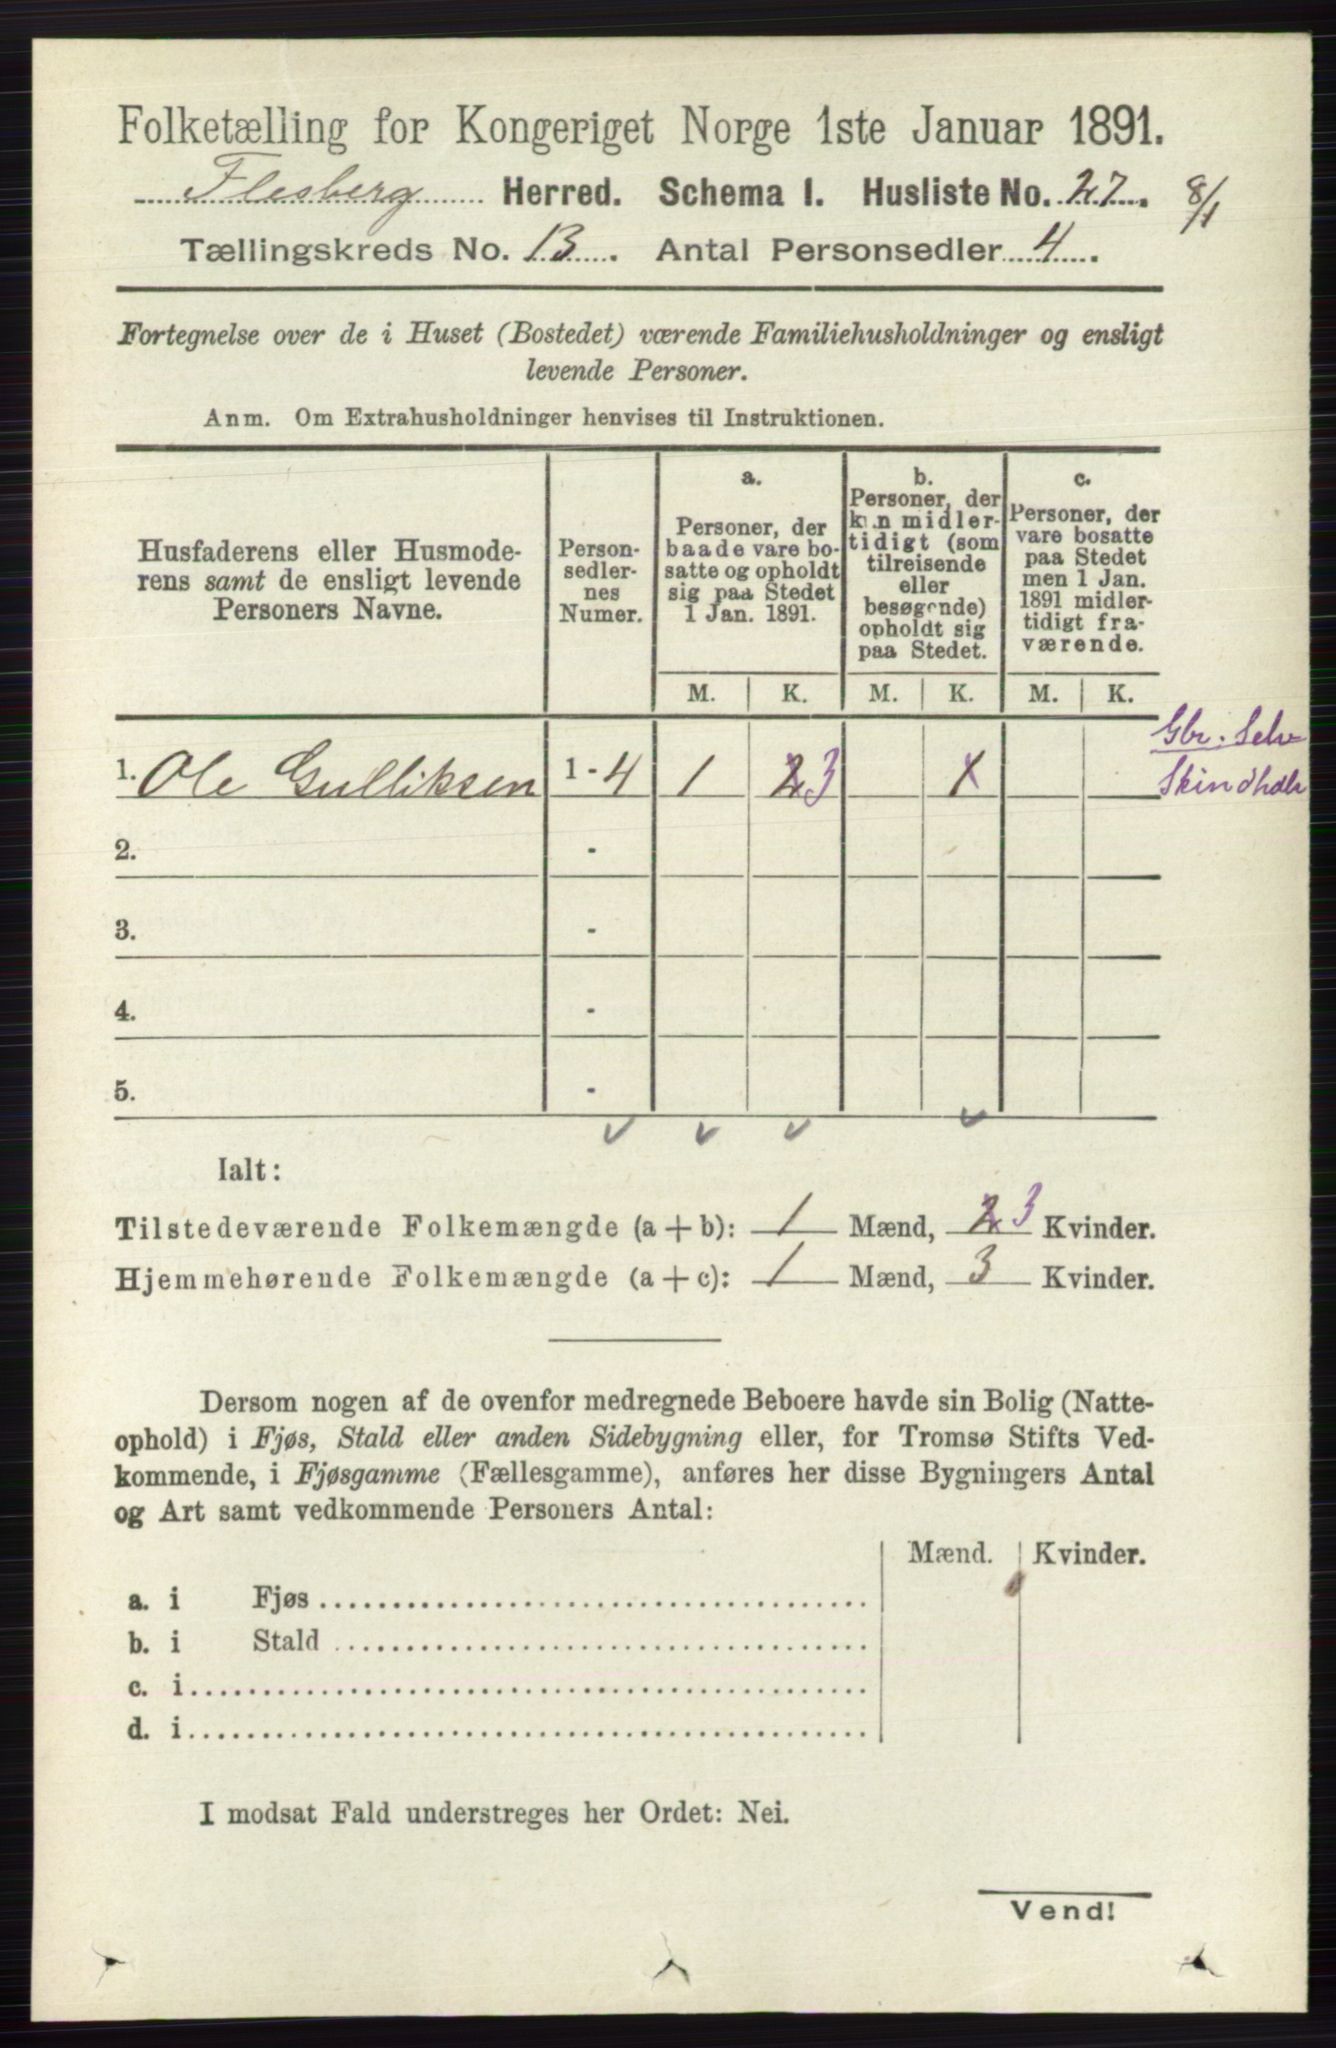 Folketælling for Kongeriget Norge 1ste Januar 1891.
Flesberg Herred. Schema I. Husliste No. 27. 8/1
Tællingskreds No. 13. Antal Personsedler 4.
Fortegnelse over de i Huset (Bostedet) værende Familiehusholdninger og ensligt
levende Personer.
Anm. Om Extrahusholdninger henvises til Instruktionen.
Husfaderens eller Husmode-
rens samt de ensligt levende
Personers Navne.
Person-
sedler-
nes
Numer.
a.
Personer, der
baade vare bo-
satte og opholdt
sig paa Stedet
1 Jan. 1891.
b.
Personer, der
kun midler-
tidigt (som
tilreisende
eller
besøgende)
opholdt sig
paa Stedet.
c.
Personer, der
vare bosatte
paa Stedet
men 1 Jan.
1891 midler-
tidigt fra-
værende.
M. K. M. K. M. K.
1. Ole Gulliksen 1 - 4 1 2 3 1
Gbr. Selv
2. -
3. -
4. -
5. -
Ialt:
Tilstedeværende Folkemængde (a + b): 1 Mænd, 2 3 Kvinder.
Hjemmehørende Folkemængde (a + c): 1 Mænd, 3 Kvinder.
Dersom nogen af de ovenfor medregnede Beboere havde sin Bolig (Natte-
ophold) i Fjøs, Stald eller anden Sidebygning eller, for Tromsø Stifts Ved-
kommende, i Fjøsgamme (Fællesgamme), anføres her disse Bygningers Antal
og Art samt vedkommende Personers Antal:
Mænd. Kvinder.
a. i Fjøs
b. i Stald
c. i
d. i
I modsat Fald understreges her Ordet: Nei.
Vend!